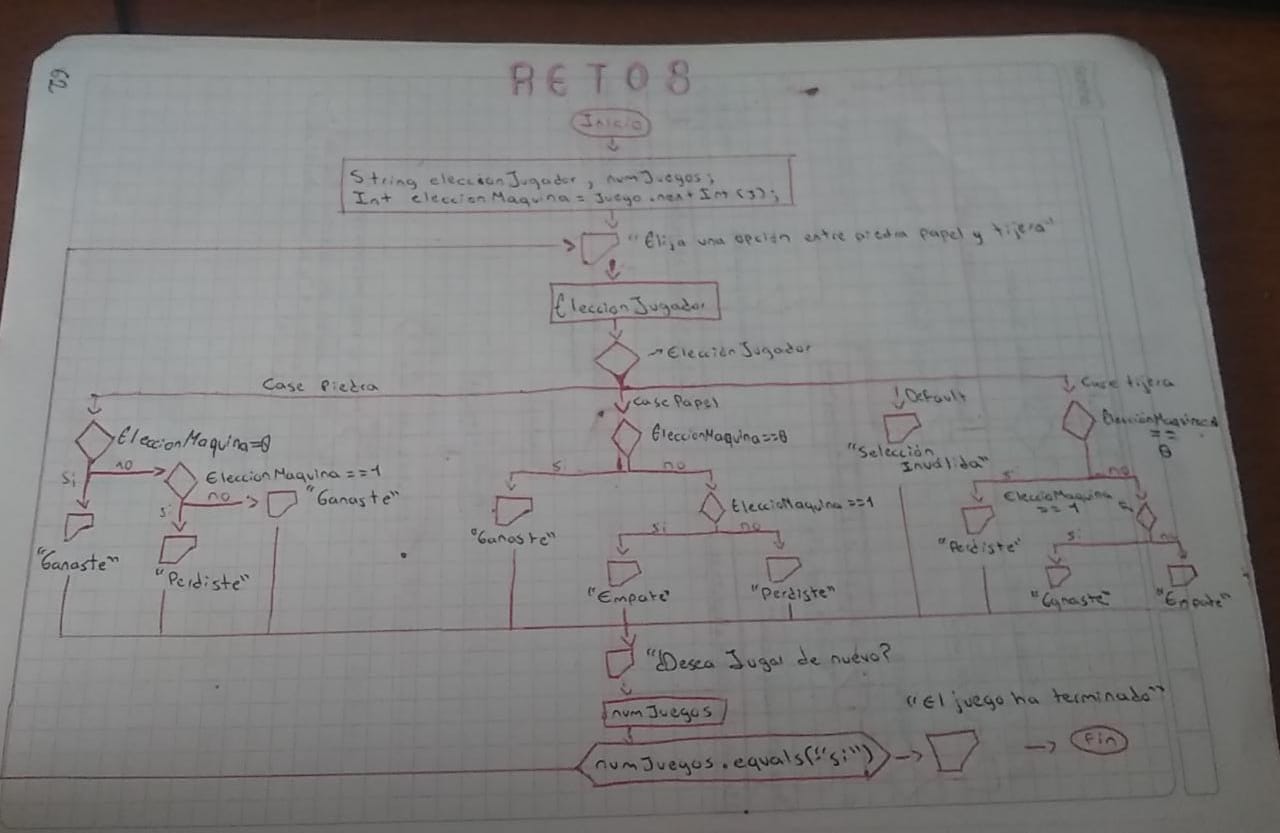 62
RETO 8
Inicio
String eleccionJugador, numJuegos;
Int eleccionMaquina = Juego.nextInt(3);
"Elija una opción entre piedra papel y tijera"
EleccionJugador
→Elección Jugador
Case Piedra
Case Papel
Default
Case tijera
EleccionMaquina=0
Si
no
EleccionMaquina==1
si
no
"Ganaste"
"Ganaste"
"Perdiste"
EleccionMaquina==0
si
no
"Ganaste"
EleccioMaquina==1
si
no
"Empate"
"Perdiste"
"Selección
Invalida"
EleccionMaquina
==
0
si
no
"Perdiste"
EleccioMaquina
== 1
si
no
"Ganaste"
"Empate"
"¿Desea Jugar de nuevo?
numJuegos
numJuegos.equals("si")
"El juego ha terminado"
Fin